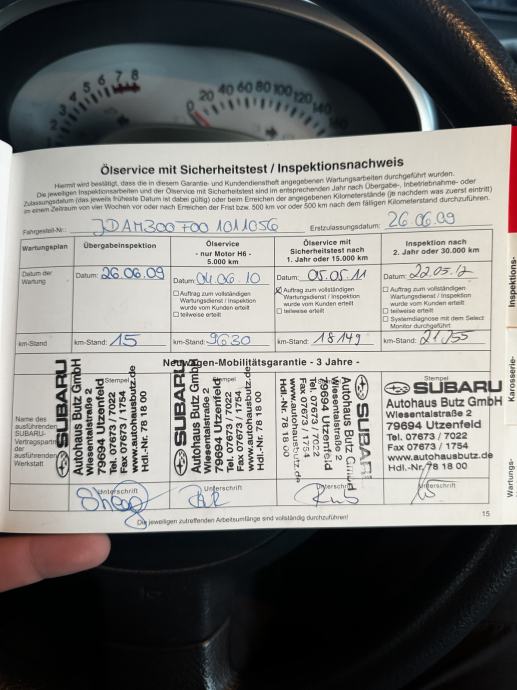 7 8
20 40 60 80 100 120
Ölservice mit Sicherheitstest / Inspektionsnachweis
Hiermit wird bestätigt, dass die in diesem Garantie- und Kundendienstheft angegebenen Wartungsarbeiten durchgeführt wurden.
Die jeweiligen Inspektionsarbeiten und der Ölservice mit Sicherheitstest sind im entsprechenden Jahr nach Übergabe-, Inbetriebnahme- oder
Zulassungsdatum (das jeweils früheste Datum ist dabei gültig) oder beim Erreichen der angegebenen Kilometerstände (je nachdem was zuerst eintritt)
im einem Zeitraum von vier Wochen vor oder nach Erreichen der Frist bzw. 500 km vor oder 500 km nach dem fälligen Kilometerstand durchzuführen.
Fahrgestell-Nr.: JDAM300+00 1011056 Erstzulassungsdatum: 26.06.09
Wartungsplan Übergabeinspektion Ölservice - nur Motor H6 - 5.000 km Ölservice mit Sicherheitstest nach 1. Jahr oder 15.000 km Inspektion nach 2. Jahr oder 30.000 km
Datum der Wartung Datum: 26.06.09 Datum: 04.06.10 Datum: 05.05.11 Datum: 22.05.12
Auftrag zum vollständigen Wartungsdienst / Inspektion wurde vom Kunden erteilt
teilweise erteilt
Auftrag zum vollständigen Wartungsdienst / Inspektion wurde vom Kunden erteilt
teilweise erteilt
Auftrag zum vollständigen Wartungsdienst / Inspektion wurde vom Kunden erteilt
teilweise erteilt
Systemdiagnose mit dem Select Monitor durchgeführt
km-Stand km-Stand: 15 km-Stand: 9630 km-Stand: 18149 km-Stand:
Neuwagen-Mobilitätsgarantie - 3 Jahre -
Name des ausführenden SUBARU-Vertragspartners der ausführenden Werkstatt
Stempel
SUBARU
Autohaus Butz GmbH
Wiesentalstraße 2
79694 Utzenfeld
Tel. 07673 / 7022
Fax 07673 / 1754
www.autohausbutz.de
Hdl.-Nr. 78 18 00
SUBARU
Autohaus Butz GmbH
Wiesentalstraße 2
79694 Utzenfeld
Tel. 07673 / 7022
Fax 07673 / 1754
www.autohausbutz.de
Hdl.-Nr. 78 18 00
Stempel
SUBARU
Autohaus Butz GmbH
Wiesentalstraße 2
79694 Utzenfeld
Tel. 07673 / 7022
Fax 07673 / 1754
www.autohausbutz.de
Hdl.-Nr. 78 18 00
Stempel
SUBARU
Autohaus Butz GmbH
Wiesentalstraße 2
79694 Utzenfeld
Tel. 07673 / 7022
Fax 07673 / 1754
www.autohausbutz.de
Hdl.-Nr. 78 18 00
Unterschrift Unterschrift Unterschrift Unterschrift
Die jeweiligen zutreffenden Arbeitsumfänge sind vollständig durchzuführen!
15
Inspektions-
Karosserie-
Wartungs-